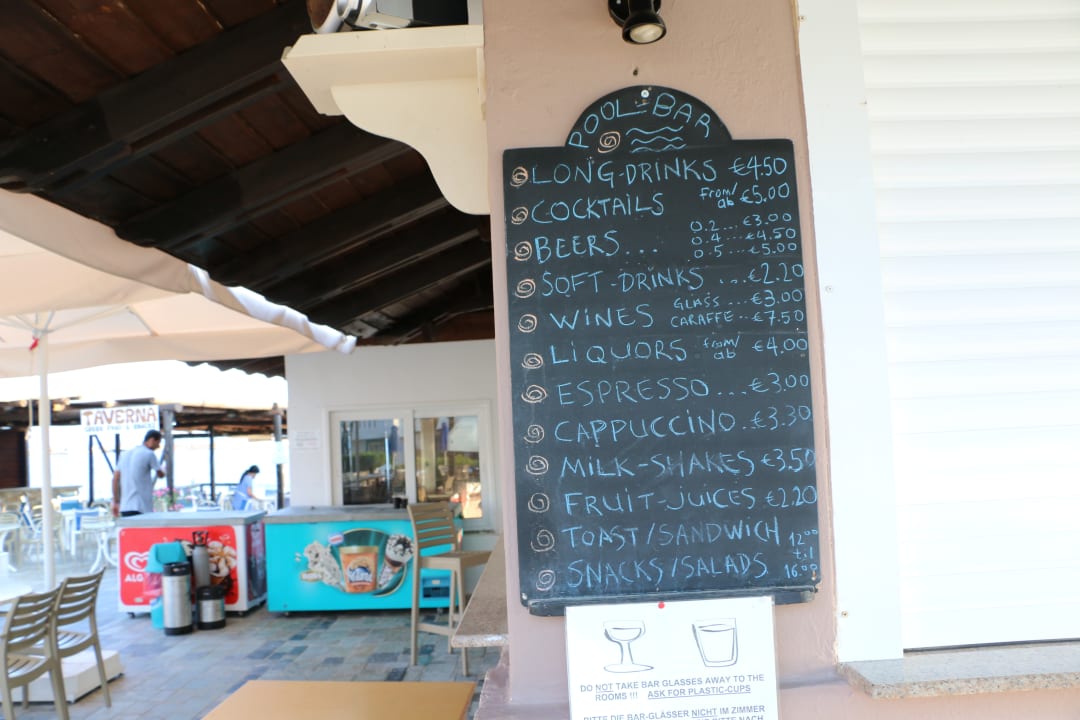 POOL-BAR
LONG-DRINKS €4.50
COCKTAILS from/ab €5.00
BEERS... 0.2...€3.00
0.4...€4.50
0.5...€5.00
SOFT-DRINKS ...€2.20
WINES GLASS...€3.00
CARAFFE..€7.50
LIQUORS from/ab €4.00
ESPRESSO...€3.00
CAPPUCCINO..€3.30
MILK-SHAKES €3.50
FRUIT-JUICES €2.20
TOAST/SANDWICH 12:00
til
SNACKS/SALADS 16:00
DO NOT TAKE BAR GLASSES AWAY TO THE
ROOMS !!! ASK FOR PLASTIC-CUPS
BITTE DIE BAR-GLÄSSER NICHT IM ZIMMER
BITTE NACH
TAVERNA